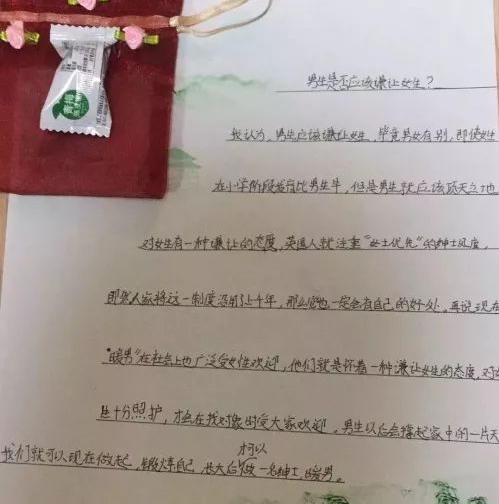 青梅
男生是否应该谦让女生？
我认为，男生应该谦让女生，毕竟男女有别，即使女生
在小学阶段发育比男生早，但是男生就应该顶天立地
对女生有一种谦让的态度，英国人就注重“女士优先”的绅士风度，
即然人家将这一制度沿用了上千年，那么它也一定会有自己的好处。再说现在
“暖男”在社会上也广泛受女性欢迎，他们就是怀着一种谦让女生的态度，对女
生十分照护，才会在找对象时受大家欢迎。男生以后会撑起家中的一片天
可以
我们就可以现在做起，锻炼自己，长大后做一名绅士，暖男。